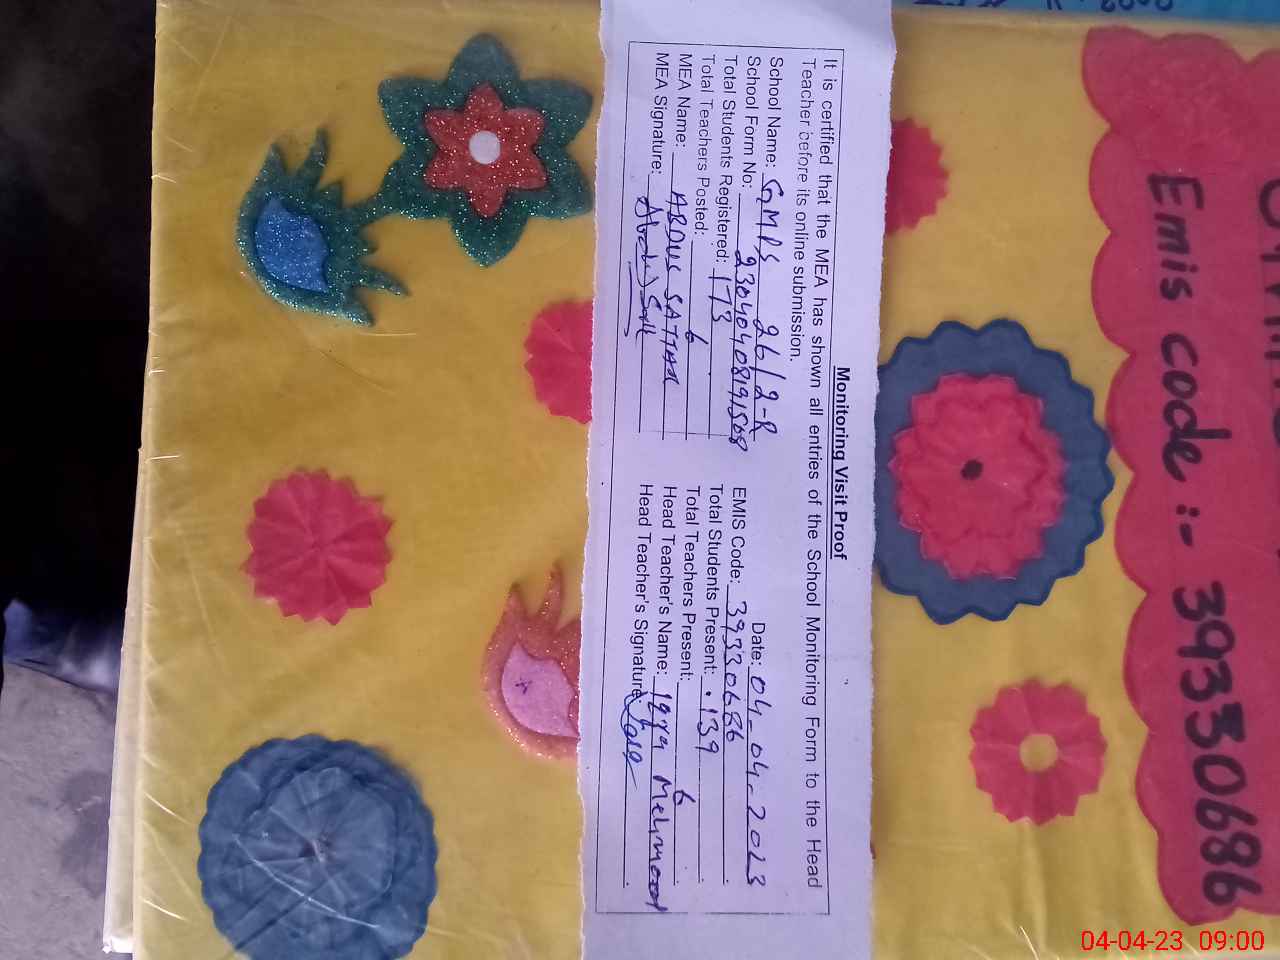 Monitoring Visit Proof
It is certified that the MEA has shown all entries of the School Monitoring Form to the Head
Teacher before its online submission.
Date: 04-04-2023
School Name: GMPS 26/2-R
EMIS Code: 39330686
School Form No: 23040408191508
Total Students Registered: 173
Total Students Present: 139
Total Teachers Posted: 6
Total Teachers Present: 6
MEA Name: ABDUS SATTAR
Head Teacher's Name: Iqra Mehmood
MEA Signature:
Head Teacher's Signature
Emis code :- 39330686
04-04-23 09:00